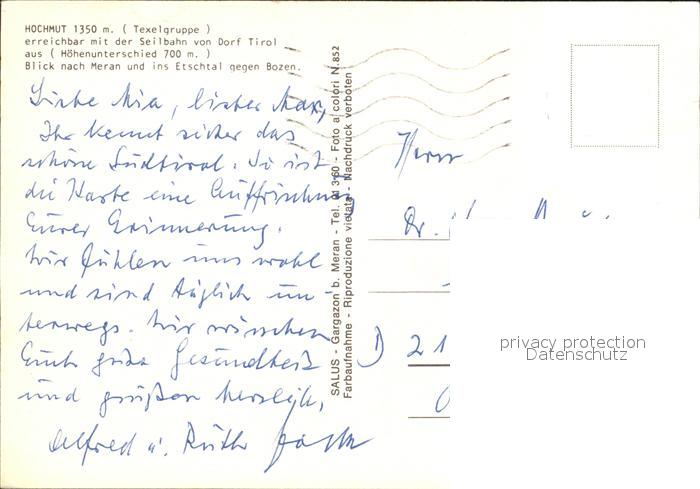 HOCHMUT 1350 m. ( Texelgruppe )
erreichbar mit der Seilbahn von Dorf Tirol
aus ( Höhenunterschied 700 m. )
Blick nach Meran und ins Etschtal gegen Bozen.
Liebe Mia, lieber Max,
Ihr kennt sicher das
schöne Südtirol. So ist
die Karte eine Auffrischung
Eurer Erinnerung.
Wir fühlen uns wohl
und sind täglich un-
terwegs. Wir wünschen
Euch gute Gesundheit
und grüßen herzlich,
Alfred u. Ruth
SALUS - Gargazon b. Meran - Tel. 31 3 60 - Foto a colori N. 852
Farbaufnahme - Riproduzione vietata - Nachdruck verboten
Herrn
Dr.
D 21
privacy protection
Datenschutz